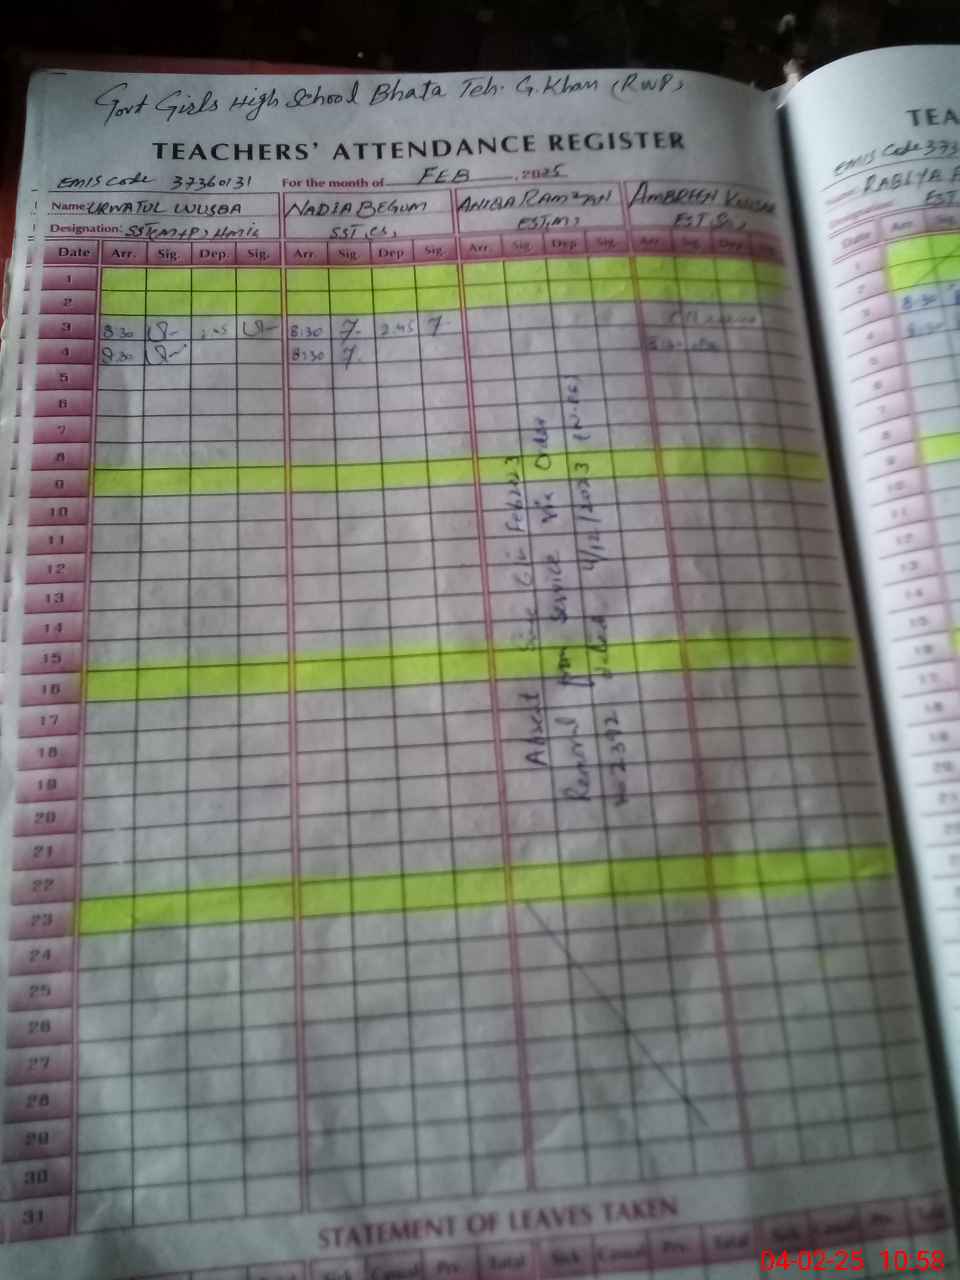 Govt Girls High School Bhata Teh. G. Khan (RWP)
TEACHERS' ATTENDANCE REGISTER
EMIS Code 37360131 For the month of FEB , 2025
Name: URWATUL WUSBA NADIA BEGUM ANIBA RAMZAN AMBREEN
Designation: SST SST (CS) EST(M) EST
Date Arr. Sig. Dep. Sig. Arr. Sig. Dep Sig. Arr. Sig. Dep Sig. Arr. Sig. Dep
1
2
3 8:30 8:30 2:45
4 8:30 8:30
5
6
7
8
9
10
11
12
13
14
15
16
17
18
19
20
21
22
23
24
25
26
27
28
29
30
31
Absent Since Feb 2023
Removal from Service vide Order
No 2392 Dated 4/12/2023
STATEMENT OF LEAVES TAKEN
Sick Casual Prv. Total Sick Casual Prv. Total Sick Casual Prv. Total
TEA
EMIS Code 373
RABIYA
EST
Date Arr
1
2
3 8:30
4 8:30
5
6
7
8
9
10
11
12
13
14
15
16
17
18
19
20
21
04-02-25 10:58